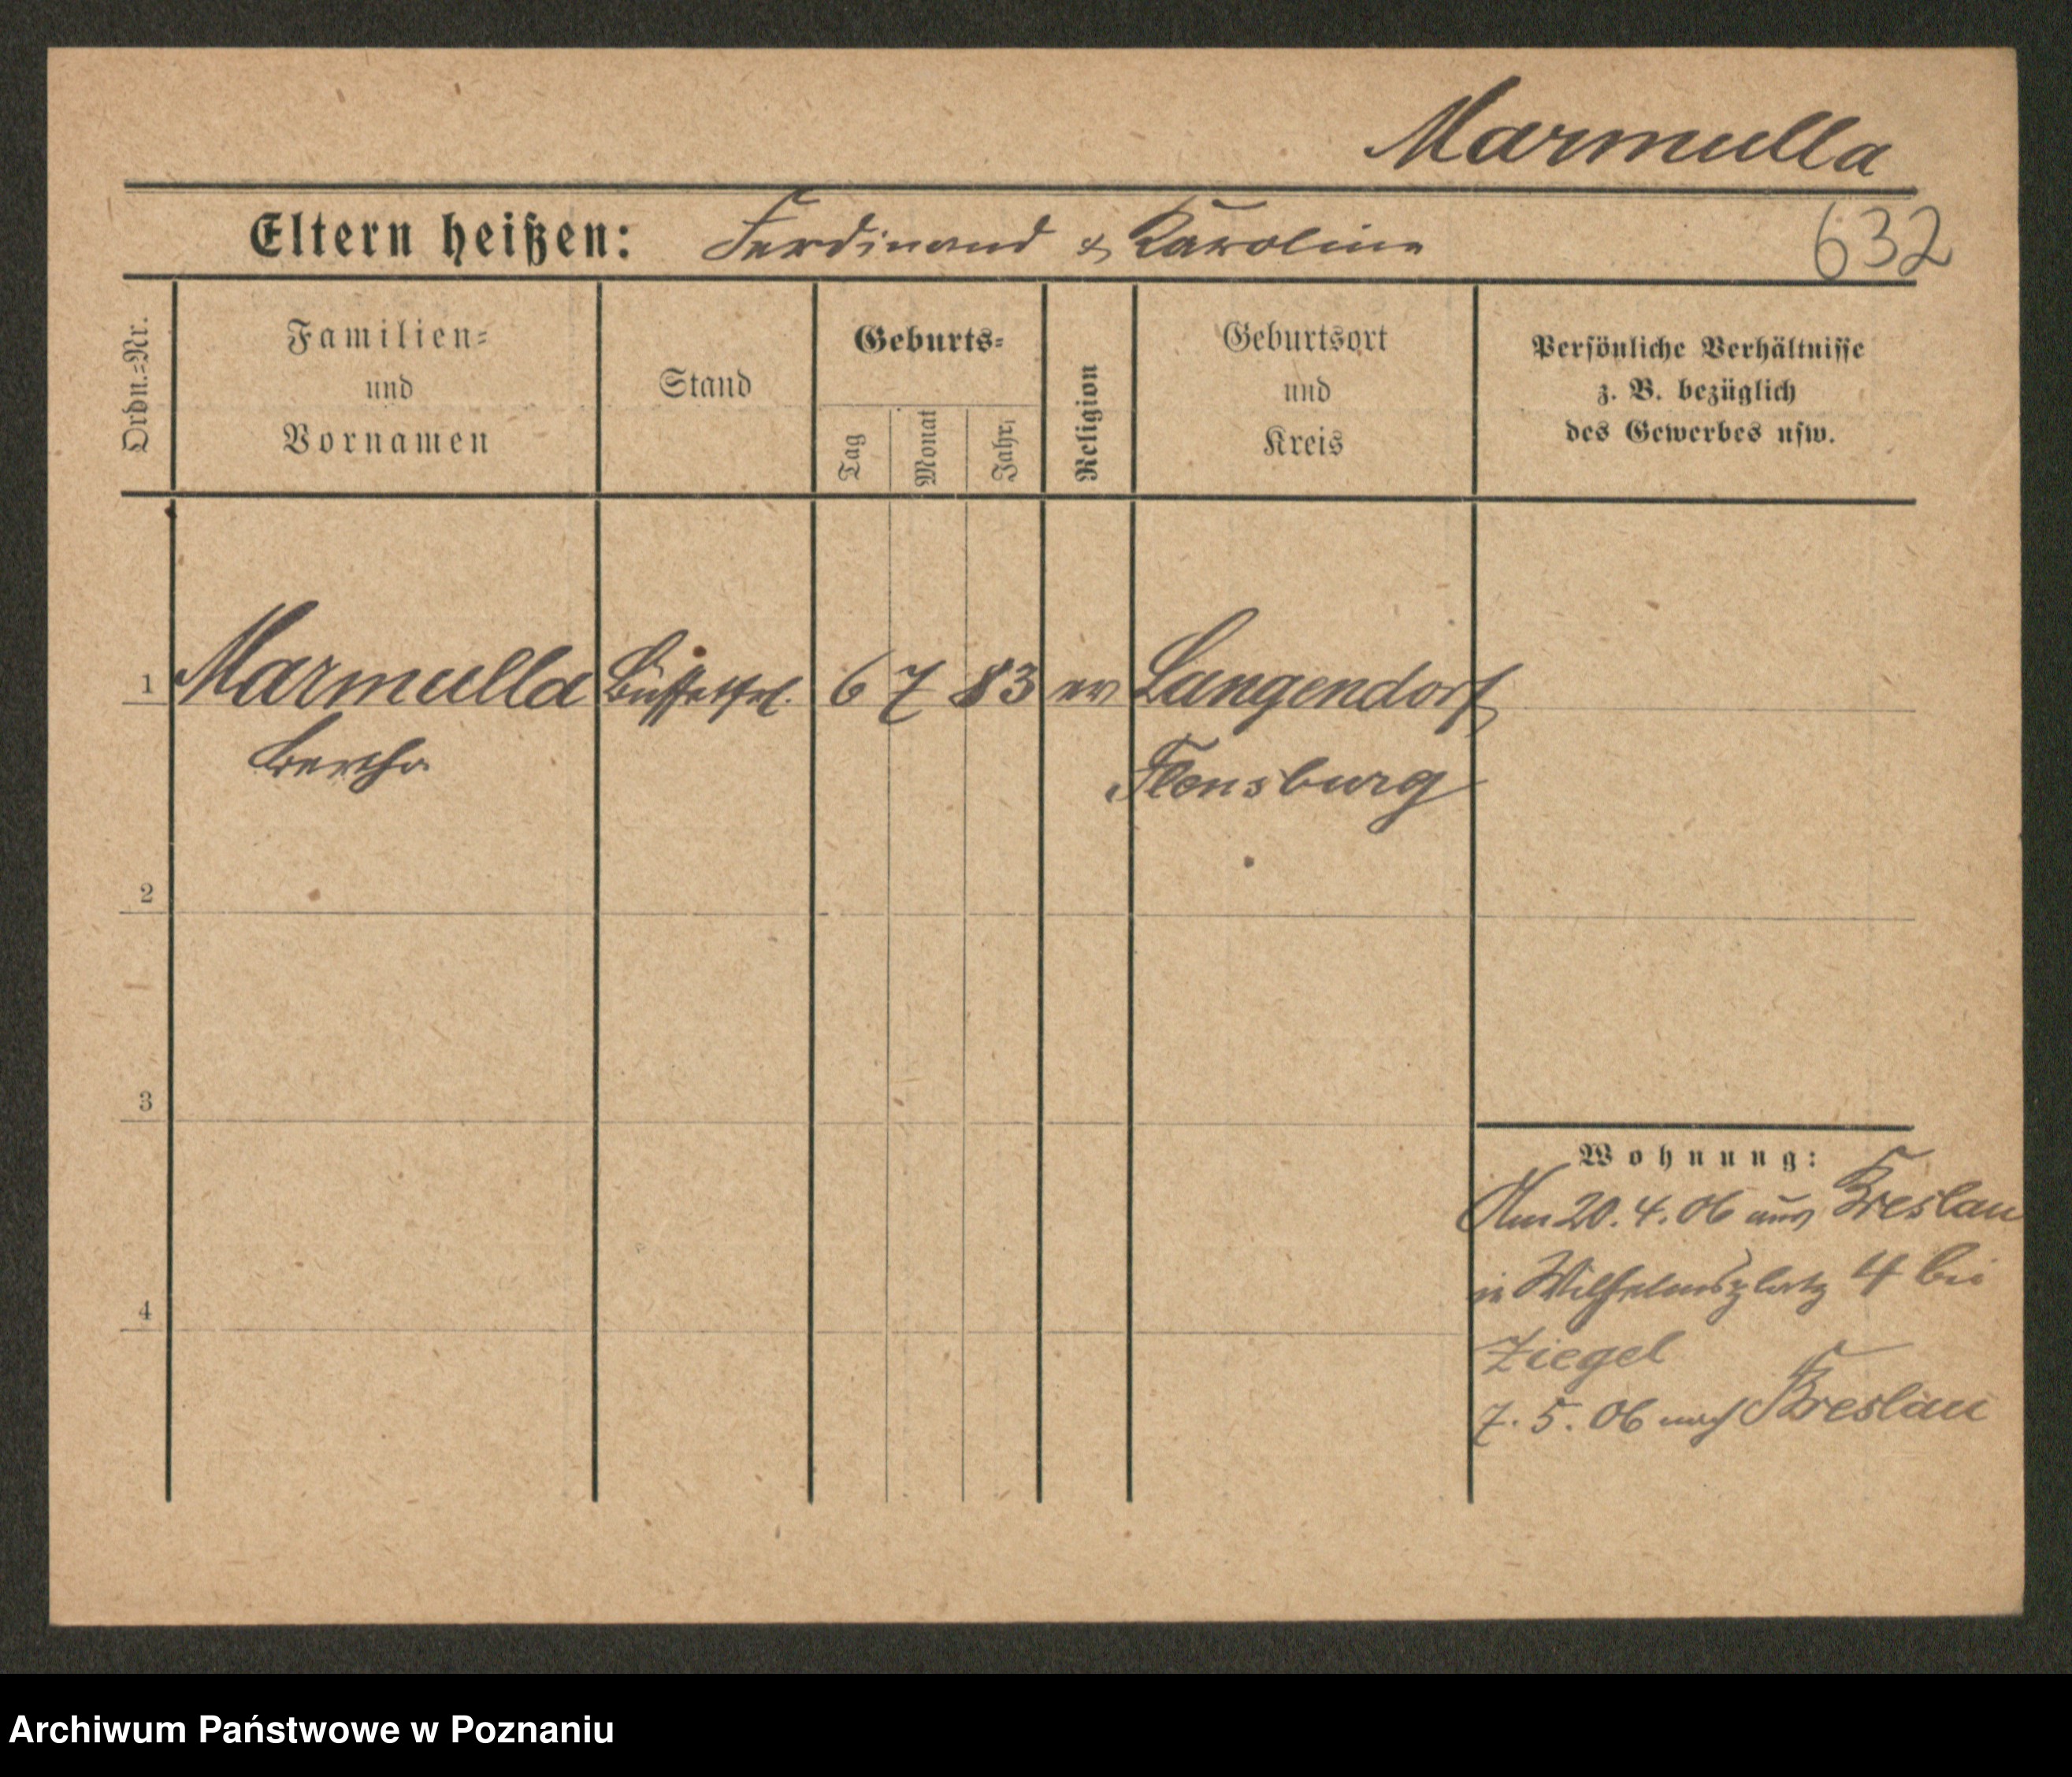 Marmulla
Eltern heißen: Ferdinand & Karoline
632
Ordn.-Nr.
Familien-
und
Vornamen
Stand
Geburts-
Tag
Monat
Jahr
Religion
Geburtsort
und
Kreis
Persönliche Verhältnisse
z. B. bezüglich
des Gewerbes usw.
1 Marmulla Büffettfrl. 6 7 83 ev Langendorf
Bertha Flensburg
2
3
4
Wohnung:
Am 20. 4. 06 aus Breslau
in Wilhelmsplatz 4 bei
Ziegel
7. 5. 06 nach Breslau
Archiwum Państwowe w Poznaniu